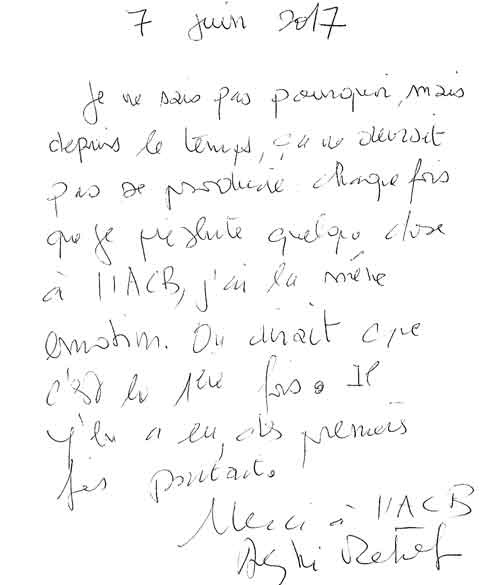 7 juin 2017
Je ne sais pas pourquoi, mais
depuis le temps, ça ne devrait
pas se produire. chaque fois
que je présente quelque chose
à l'ACB, j'ai la même
émotion. On dirait que
c'est la 1ère fois. Il
y en a eu, des premières
fois pourtant.
Merci à l'ACB